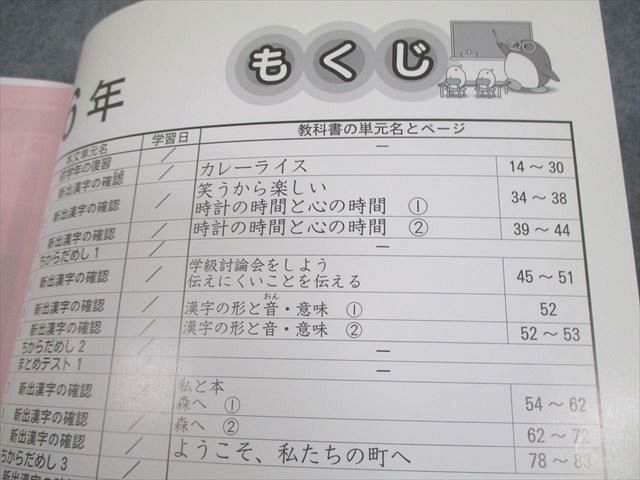 もくじ
6年
本文単元名 学習日 教科書の単元名とページ
前学年の復習 ／ ー
新出漢字の確認 ／ カレーライス 14～30
新出漢字の確認 ／ 笑うから楽しい
時計の時間と心の時間 ① 34～38
新出漢字の確認 ／ 時計の時間と心の時間 ② 39～44
ちからだめし 1 ／ ー
新出漢字の確認 ／ 学級討論会をしよう
伝えにくいことを伝える 45～51
新出漢字の確認 ／ 漢字の形と音・意味 ① 52
おん
新出漢字の確認 ／ 漢字の形と音・意味 ② 52～53
ちからだめし 2 ／ ー
まとめテスト 1 ／ ー
新出漢字の確認 ／ 私と本
森へ ① 54～62
新出漢字の確認 ／ 森へ ② 62～72
新出漢字の確認 ／ ようこそ、私たちの町へ 78～83
ちからだめし 3 ／
新出漢字の確認